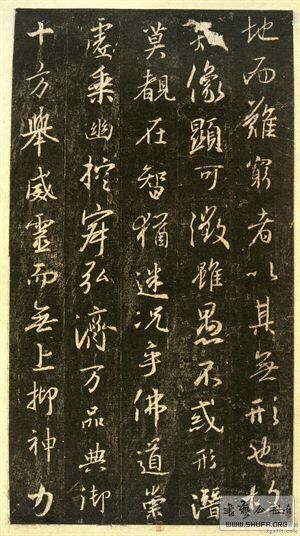 地而難窮者以其無形也故
知像顯可徵雖愚不惑形潛
莫覩在智猶迷况乎佛道崇
虛乗幽控寂弘濟万品典御
十方舉威靈而無上抑神力
書藝公社
WWW.SHUFA.ORG